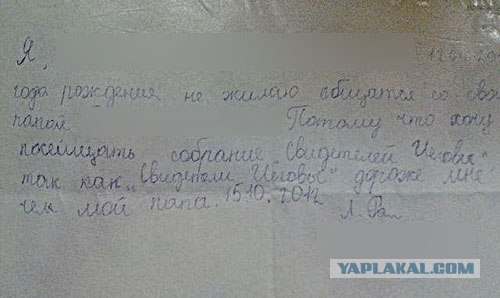 Я,
года рождения не жилаю общатся со сво
папой Потому что хочу
посещать собрание Свидетелей Иеговы"
так как „Свидетели Иеговы" дороже мне
чем мой папа. 15.10.2012
YAPLAKAL.COM